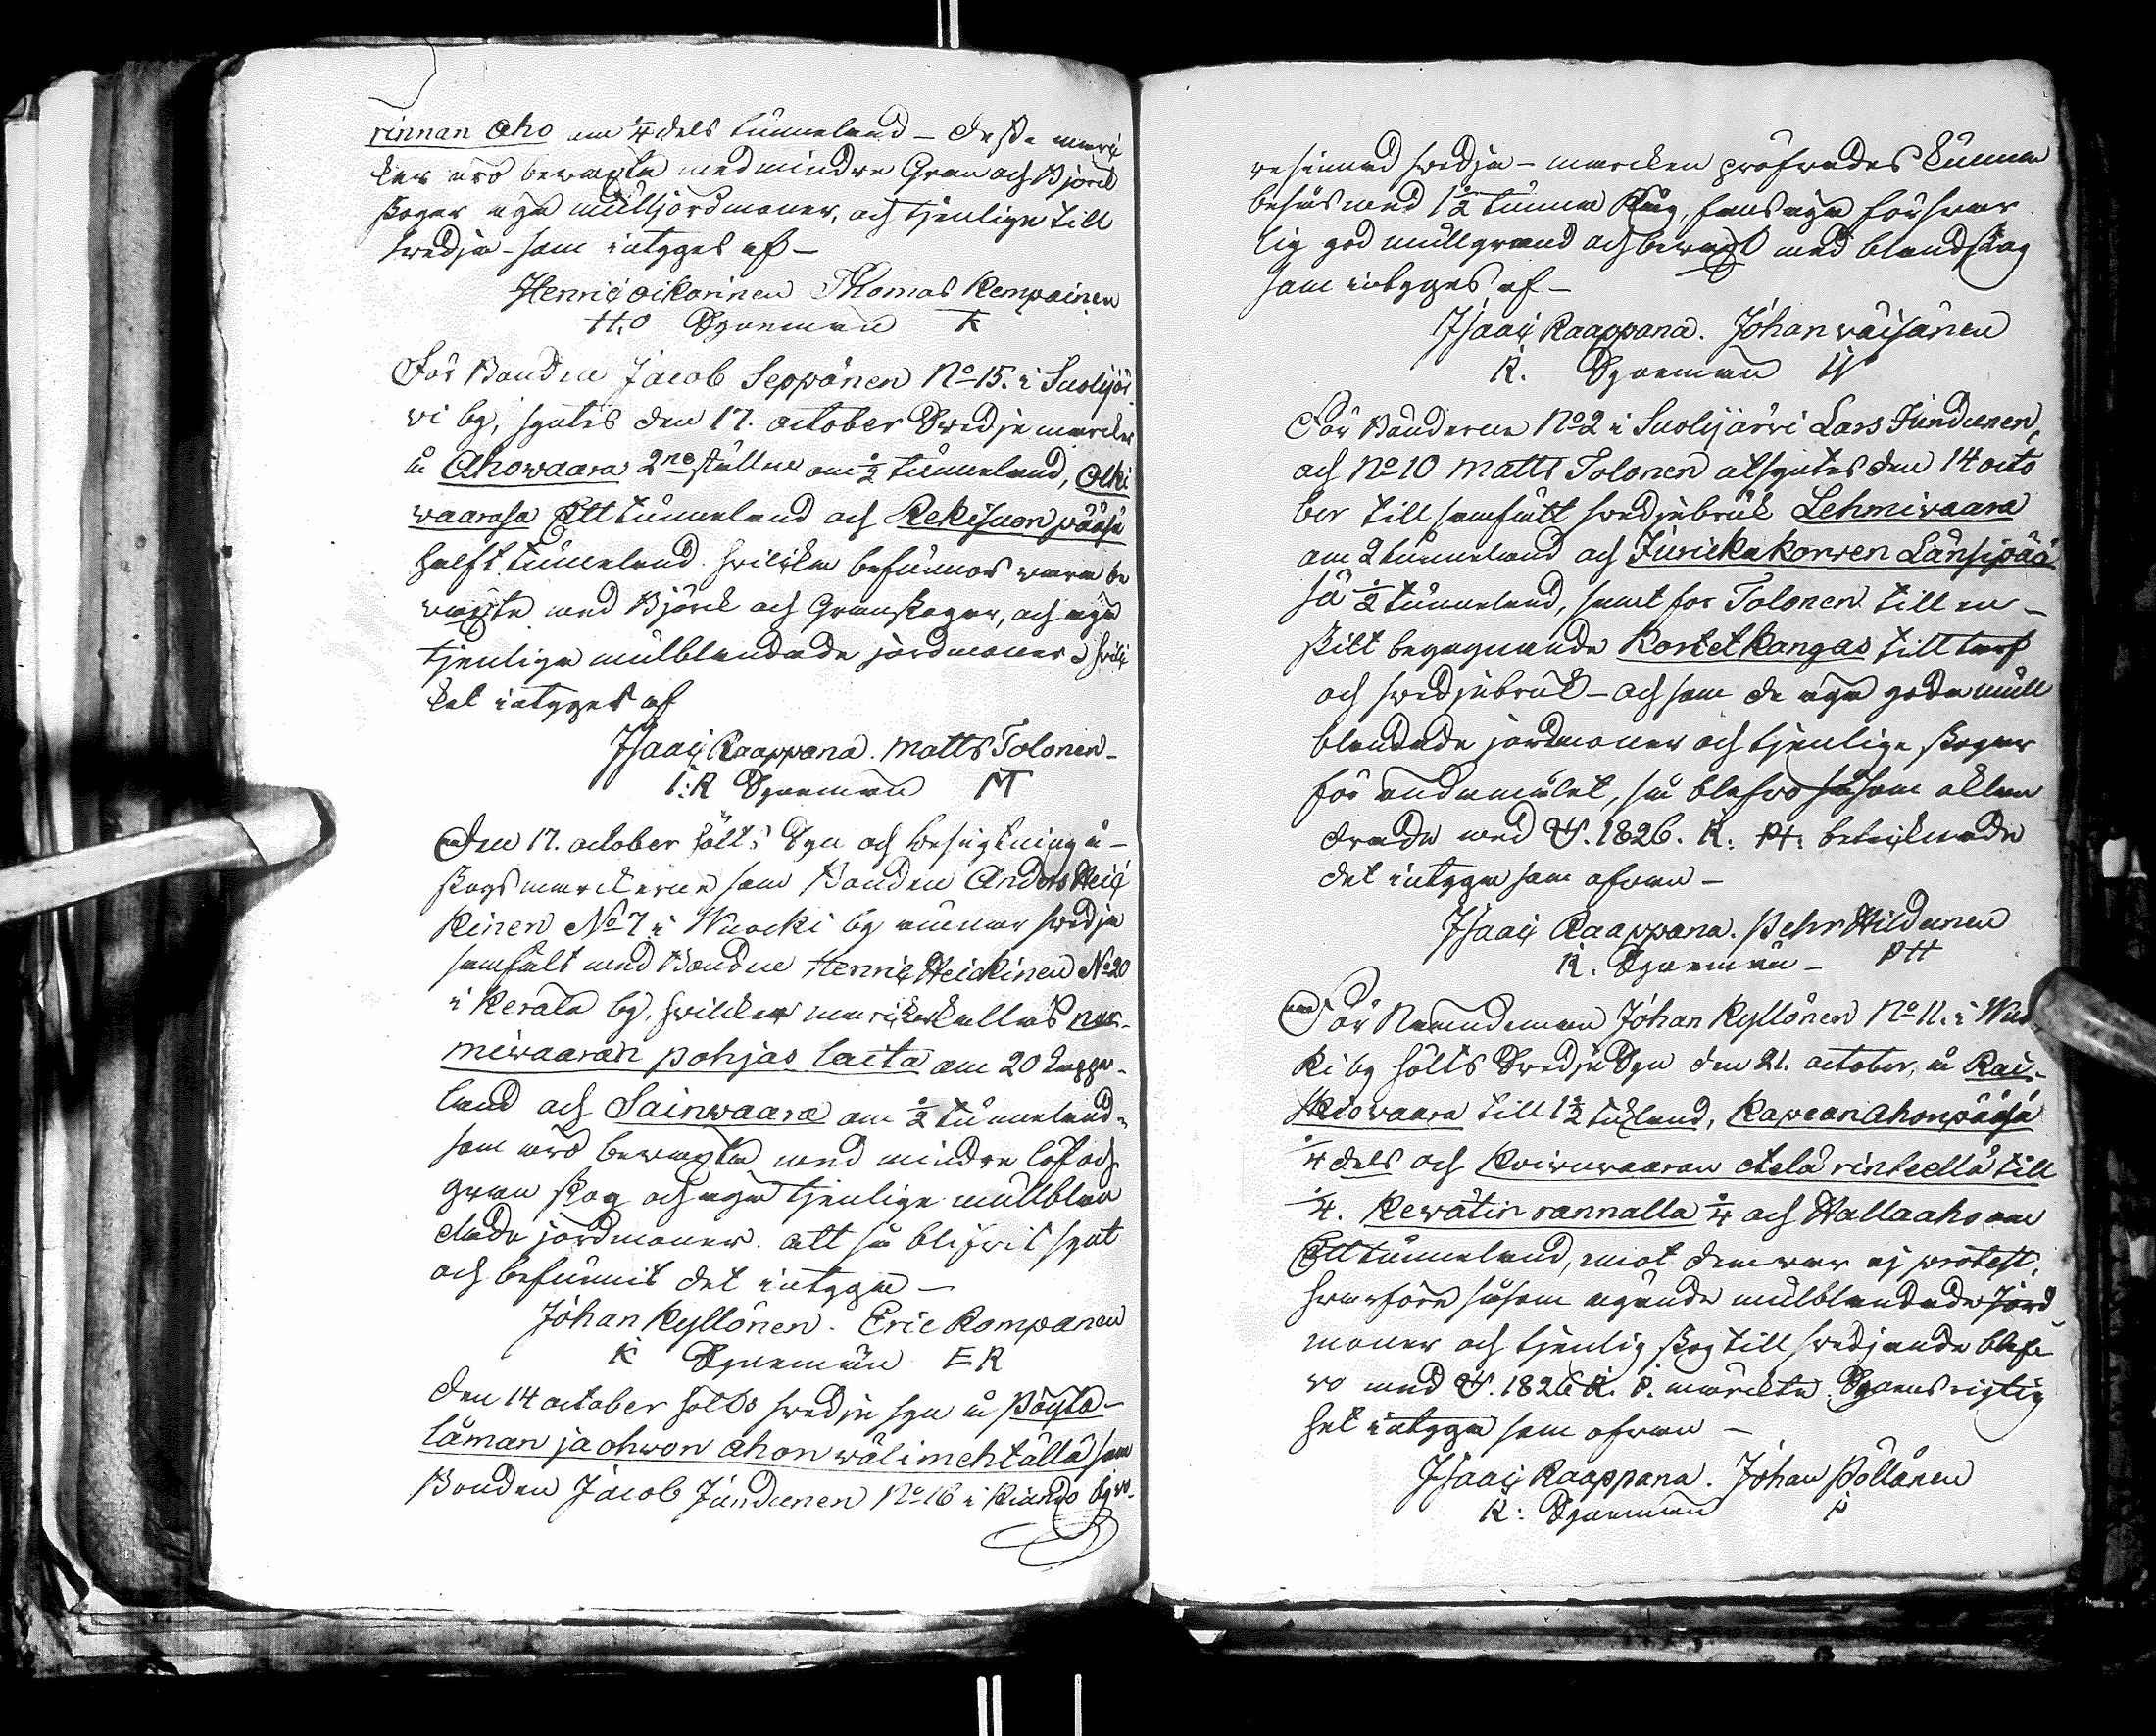 rinnan aho om 1/4 dels tunneland – desse marc
ker äro bewuxte med mindre Gran och Björck
skogar äga mulljordmoner, och tjenlige till
swedja – som intyges af –
Henric oikarinen Thomas Kempainen
H.O Synemän TK
För Bonden Jacob Seppänen No 15. i Suolijär
vi by, syntes den 17. october Swedje marcker
å Ahowaara 2ne ställen om 1/2 tunneland, Olki
waarasa Ett tunneland och Rekisuon pääsä
halft tunneland. hvilcka befunnos wara be
wuxte med Björck och Granskogar, och äga
tjenlige mulblandade jordmoner, hvil
ket intyges af
Isaac Raappana. Matts Tolonen –
I:R Synemän MT
Den 17. october hölts Syn och besigtning å –
skogsmarckerne som Bonden Anders Heic
kinen No 7 i Wuocki by ämnar swedja
samfält med Bonden Henric Heickinen No 20
i Kerälä by, hvilcka marcker kallas nur-
miwaaran pohjas laita om 20 kappe-
land och Sainwaara om 1/2 tunneland
som äro bewuxte med mindre löf och
gran skog och äga tjenlige mullblan
dade jordmoner. att så blifwit synt
och befunnit det intyga –
Johan Kyllönen. Eric Kompanen
K Synemän E K
den 14 october höllts swedje syn å Pöytä-
läman ja ohwon ahon wälimehtällä som
Bonden Jacob Jundunen No 16 i Kiando by
resinerad swedja – marcken pröfwades kunna
besås med 1 1/2 tunna Råg, fans äga förswar
lig god mullgrund och bewuxt med blandskog
som intyges af –
Isaac Raappana. Johan wäisänen
R. Synemän W
För Bönderne No 2 i Suolijärvi Lars Jundunen,
och No 10 Matts Tolonen afsyntes den 14 octo
ber till samfält swedjebruk Lehmiwaara
om 2 tunneland och Juricka korwen Länsipää
sä 1/2 tunneland, samt for Tolonen till en –
skilt begagnande Kostet kangas till torf
och swedjebruk – och som de äga goda mull
blandade jordmoner och tjenlige skogar
för ändamålet, så blefwo såsom
med S. 1826. R. PH. betecknade
det intyga som ofwan –
Isaac Raappana. Pehr Hildunen
R. Synemän – PH
För Nämndeman Johan Kyllönen No 11. i Wuo
ki by hölts Swedje Syn den 21. october, å Rais-
kiowaara till 1 1/2 tunland, Kapean ahonpääsä
1/4 dels och Koiwuwaaran etelä rinteellä till
1/4. Kewätin rannalla 1/4 och Hallaaho om
Ett tunneland, emot dem war ej protest,
hwarföre såsom ägande mulblandade Jord
moner och tjenlig skog till swedjande blef
wo med S. 1826 R. P. märckte. Synens rigtig
het intyga som ofwan –
Isaac Raappana. Johan Pöllänen
R: Synemän P